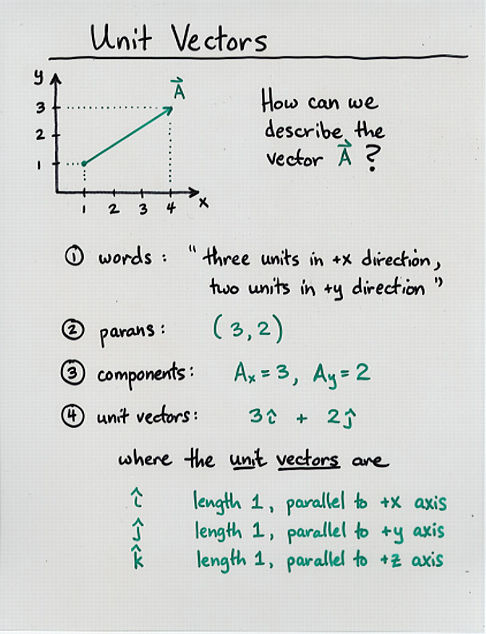 Unit Vectors
y
A⃗
3
2
1
1 2 3 4 x
How can we
describe the
vector A⃗ ?
① words : " three units in +x direction,
two units in +y direction "
② parans : (3,2)
③ components : Ax = 3, Ay = 2
④ unit vectors : 3î + 2ĵ
where the unit vectors are
î length 1, parallel to +x axis
ĵ length 1, parallel to +y axis
k̂ length 1, parallel to +z axis